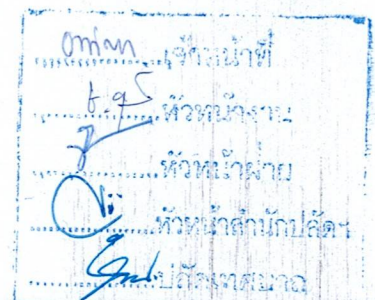 เจ้าหน้าที่
หัวหน้างาน
หัวหน้าฝ่าย
หัวหน้าสำนักปลัดฯ
ปลัดเทศบาล